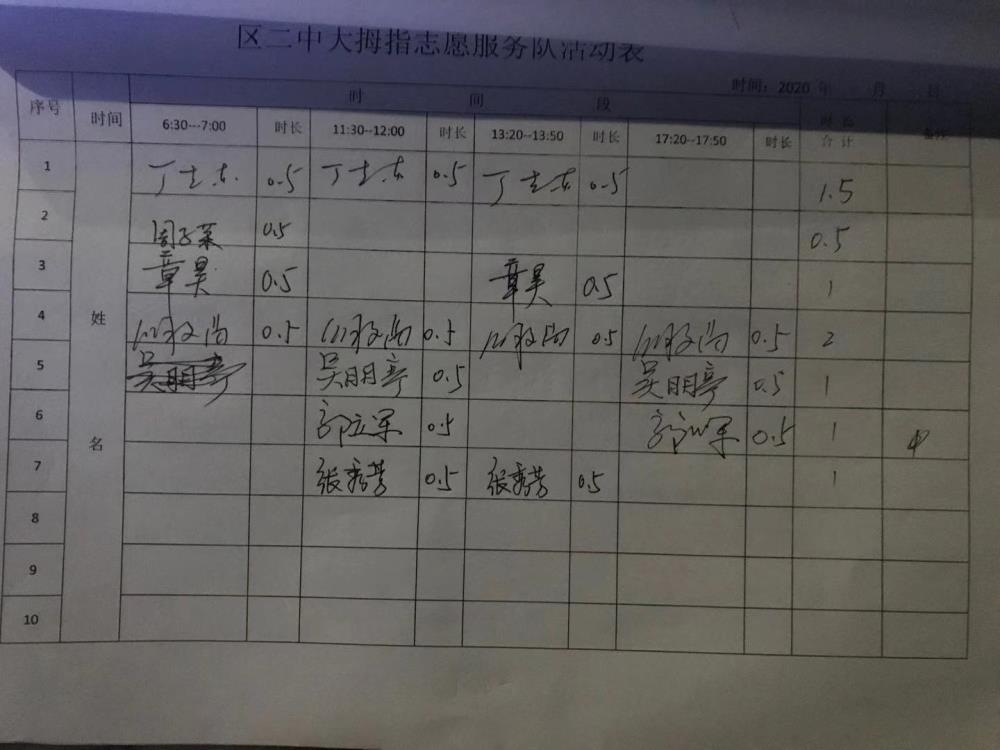 区二中大拇指志愿服务队活动表
时间：2020 年 月 日
序号 时间 时 间 段 时长合计 备注
6:30---7:00 时长 11:30--12:00 时长 13:20--13:50 时长 17:20--17:50 时长
姓 名
1 丁志东 0.5 丁志东 0.5 丁志东 0.5 1.5
2 周子荣 0.5 0.5
3 章昊 0.5 章昊 0.5 1
4 0.5 0.5 0.5 0.5 2
5 吴明亭 吴明亭 0.5 吴明亭 0.5 1
6 郭立军 0.5 郭立军 0.5 1
7 张秀芳 0.5 张秀芳 0.5 1
8
9
10